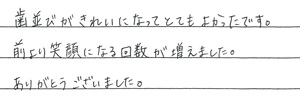 歯並びがきれいになってとてもよかったです。
前より笑顔になる回数が増えました。
ありがとうございました。